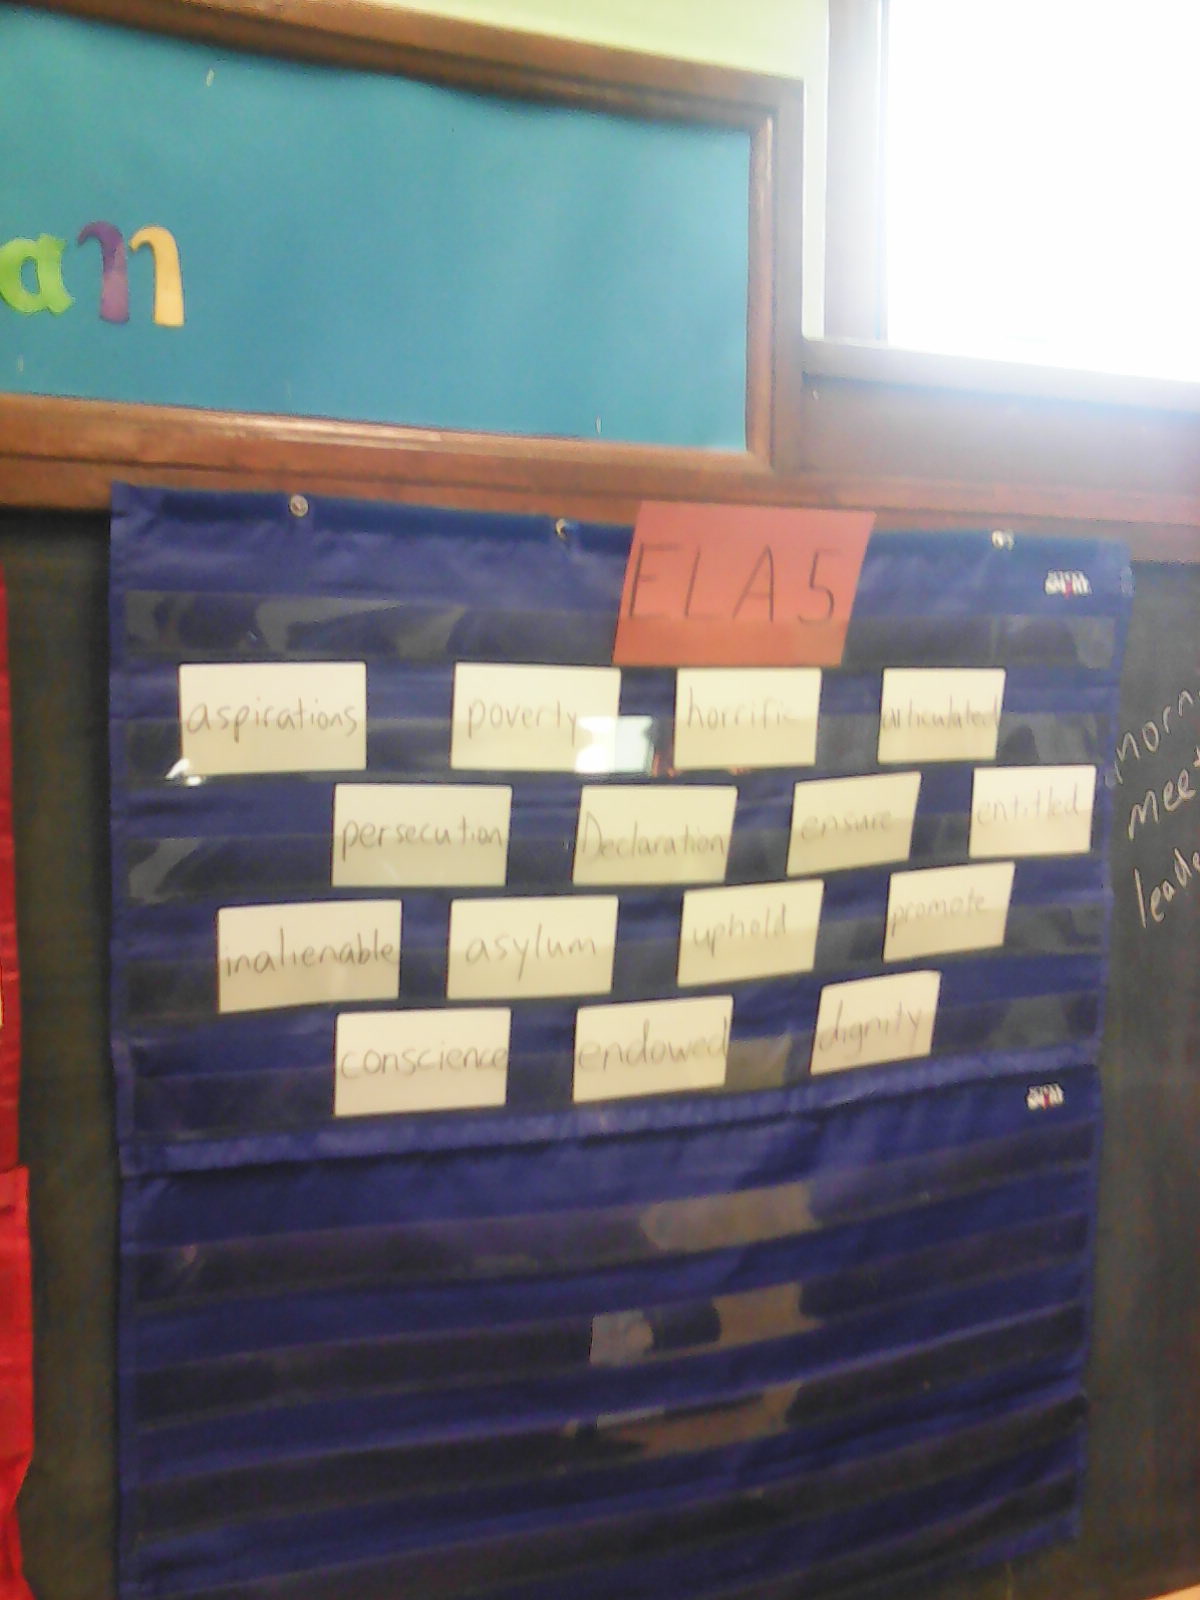 an
ELA 5
aspirations poverty horrific articulated
persecution Declaration ensure entitled
inalienable asylum uphold promote
conscience endowed dignity
morn
meet
leade